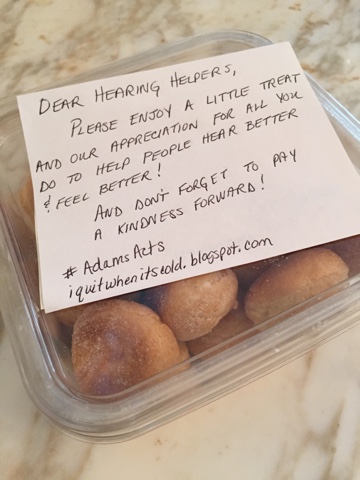 DEAR HEARING HELPERS,
PLEASE ENJOY A LITTLE TREAT
AND OUR APPRECIATION FOR ALL YOU
DO TO HELP PEOPLE HEAR BETTER
& FEEL BETTER!
AND DON'T FORGET TO PAY
A KINDNESS FORWARD!
#AdamsActs
iquitwhenitseold.blogspot.com